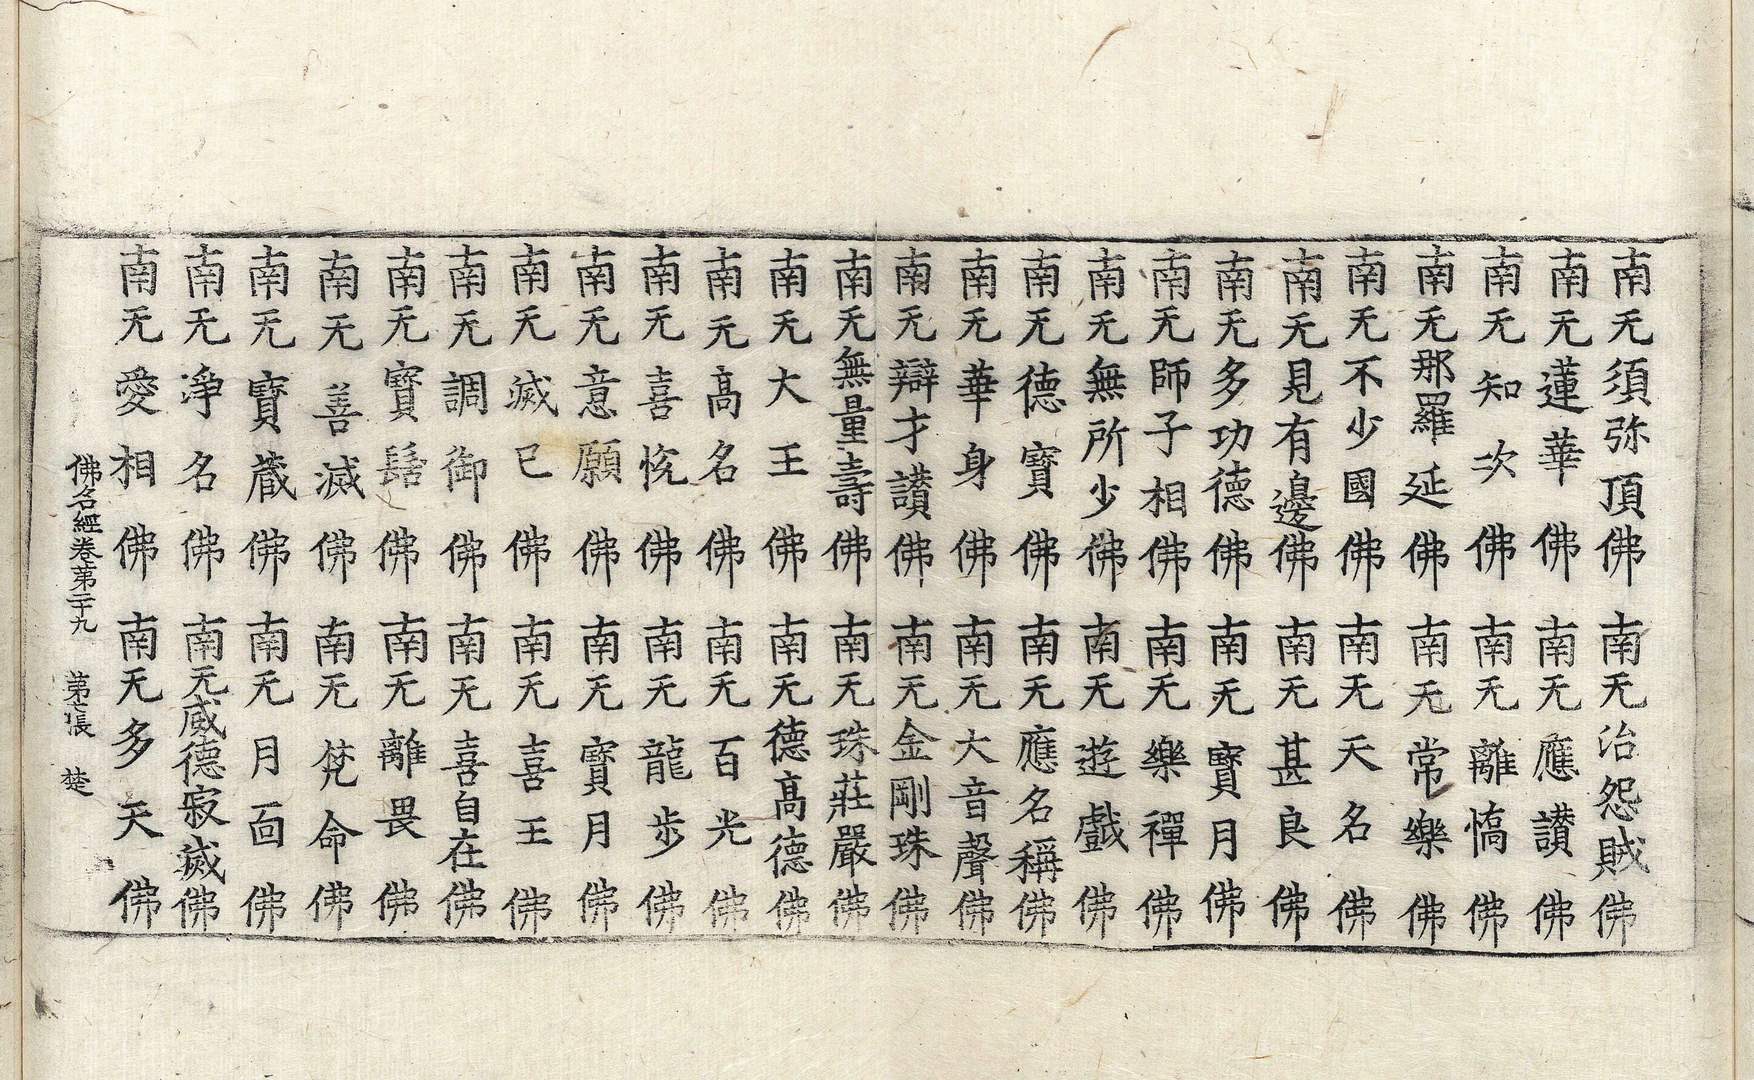 南无須弥頂佛南无治怨賊佛
南无蓮華佛南无應讃佛
南无知次佛南无離憍佛
南无那羅延佛南无常樂佛
南无不少國佛南无天名佛
南无見有邊佛南无甚良佛
南无多功德佛南无寶月佛
南无師子相佛南无樂禪佛
南无無所少佛南无遊戲佛
南无德寶佛南无應名稱佛
南无華身佛南无大音聲佛
南无辯才讃佛南无金剛珠佛
南无無量壽佛南无珠莊嚴佛
南无大王佛南无德髙德佛
南无髙名佛南无百光佛
南无喜恱佛南无龍步佛
南无意願佛南无寶月佛
南无滅已佛南无喜王佛
南无調御佛南无喜自在佛
南无寶髻佛南无離畏佛
南无善滅佛南无梵命佛
南无寶蔵佛南无月面佛
南无淨名佛南无威德寂滅佛
南无愛相佛南无多天佛
佛名經卷第二十九 第七張 楚